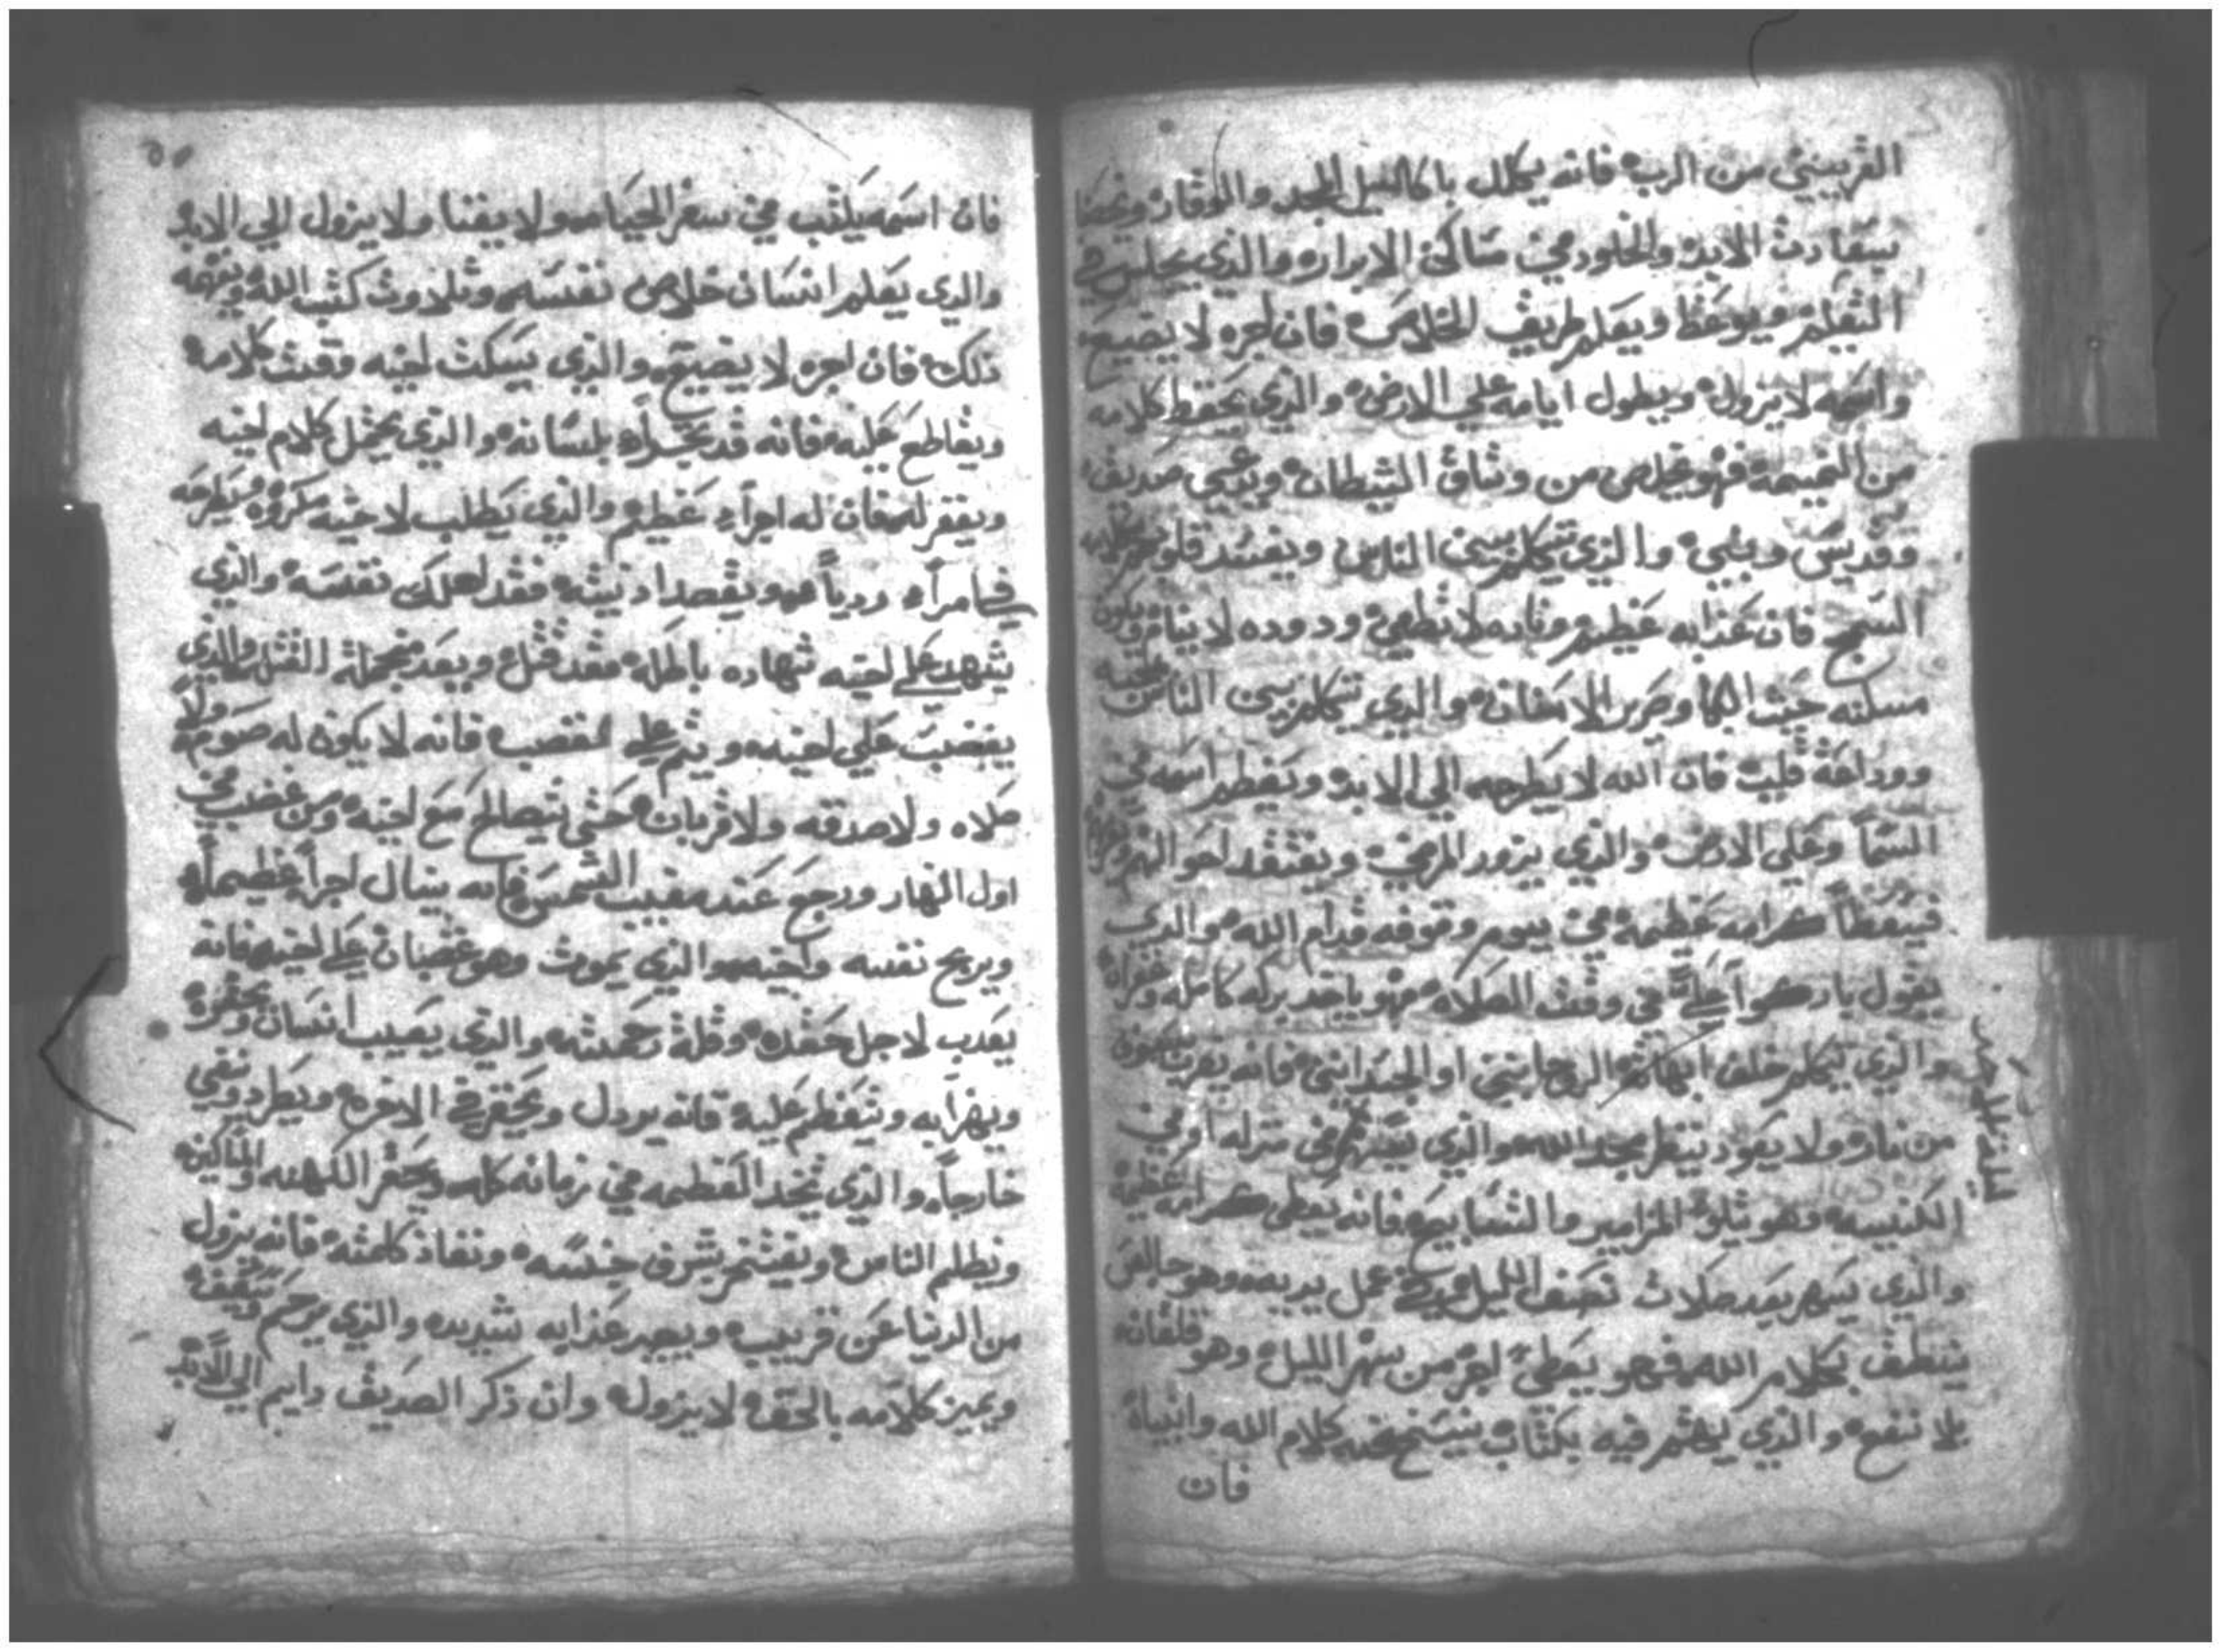 القريبين من الرب فانه يكلل باكاليل المجد والوقار ويحضا
بسعادت الابد والخلود في مساكن الابرار والذي يجلس في
التعليم ويوعظ ويعلم طريق الخلاص فان اجره لا يضيع
واسمه لا يزول ويطول ايامه علي الارض والذي يحفظ كلامه
من النميمه فهو يخلص من وثاق الشيطان ويدعي صديق
وقديس ونبي والذي يتكلم بين الناس ويفسد قلوبهم بكلامه
السمج فان عذابه عظيم وناره لا تطفي ودوده لا ينام ويكون
مسكنه حيث البكا وصرير الاسنان والذي يتكلم بين الناس بمحبه
ووداعة قلب فان الله لا يطرحه الي الابد ويعظم اسمه في
السما وعلي الارض والذي يزور المرضي ويفتقد احوالهم
فيعطا كرامه عظيمه في يوم وقوفه قدام الله والذي
يقول باركوا علي في وقت الصلاه فهو ياخد بركه كامله وغفران
والذي يتكلم خلف ابهاته الروحانيين او الجسدانيين فانه
من ناره ولا يعود ينظر مجد الله والذي يترنم في منزله او في
الكنيسه وهو يتلو المزامير والتسابيح فانه يعطي كرامه عظيمه
والذي يسهر بعد صلات نصف الليل في عمل يديه وهو جالس
ينطق بكلام الله فهو يعطي اجر من سهر الليل وهو
بلا نفع والذي يهتم فيه بكتاب ينسخ منه كلام الله وانبياه
فان
فان اسمه يكتب في سفر الحياه ولا يفنا ولا يزول الي الابد
والدي يعلم انسان خلاص نفسه وتلاوت كتب الله ويفهمه
ذلك فان اجره لا يضيع والذي يسكت اخيه وقت كلامه
ويقاطع عليه فانه قد بلسانه والذي يحتمل كلام اخيه
ويغفر له فان له اجراً عظيم والذي يطلب لاخيه مكروه
في امراً ردياً ويقصد اديته فقد اهلك نفسه والذي
يشهد علي اخيه شهاده باطله فقد قتل ويعد من جملة القتله والذي
يغضب علي اخيه ويتم علي غضبه فانه لا يكون له صوم ولا
صلاه ولا صدقه ولا قربان حتي يتصالح مع اخيه ومن غضب في
اول النهار ورجع عند مغيب الشمس فانه ينال اجراً عظيماً
ويريح نفسه واخيه والذي يموت وهو غضبان علي اخيه فانه
يعدب لاجل حقده وقلة رحمته والذي يعيب انسان ويحقره
ويهزا به ويتعظم عليه فانه يردل ويحتقر في الاخره ويطرد ونفي
خارجاً والذي يتخد العظمه في زمانه كله ويحقر الكهنه والمساكين
ويظلم الناس ويفتخر بشرف جنسه ونفاد كلمته فانه يزول
من الدنيا عن قريب ويجد عذابه شديده والذي يرحم
ويميز كلامه بالحق لا يزول وان ذكر الصديق دايم الي الابد